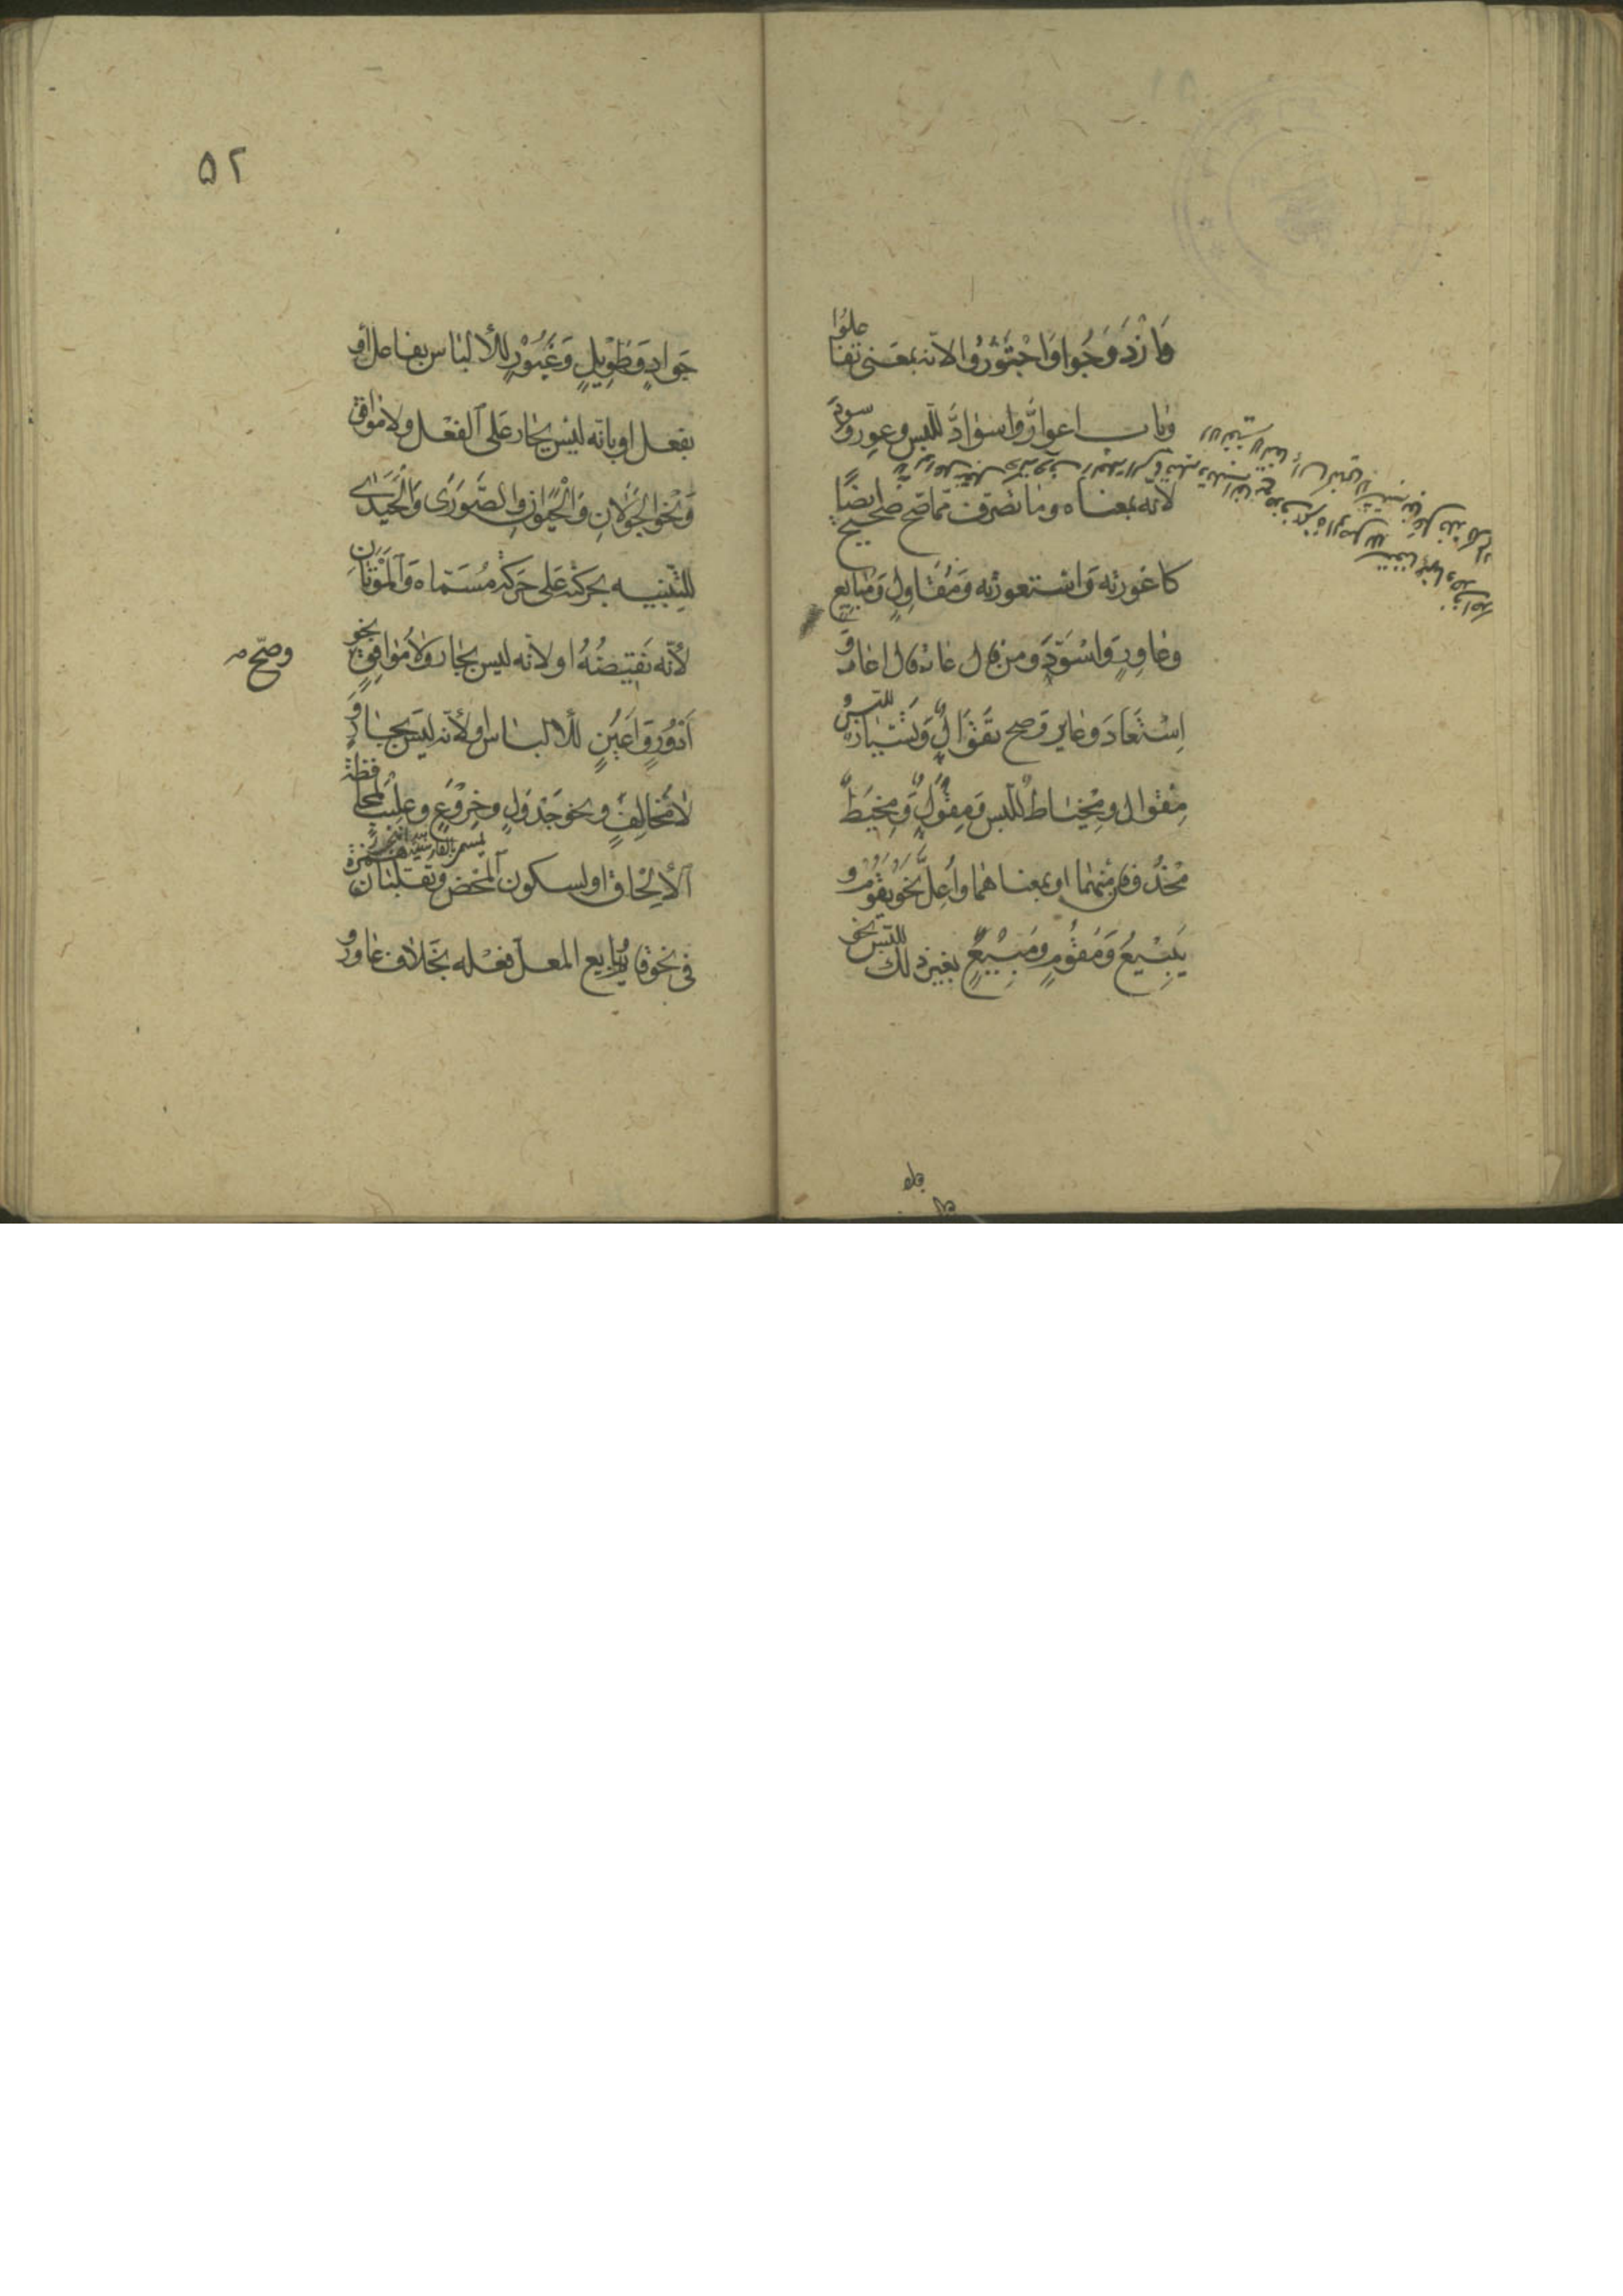 وَازْدَوَجُوا وَاجْتَوَرُوا لانه بمعنى تفاعلوا
وباب اعوارَّ واسوادَّ للبس وعور وسود
لانه بمعناه وما تصرف مما صح صحيح ايضًا
كاعورته واستعورته ومُقَاوِلٍ ومُبَايِع
وعاوِرٍ واسْوَدَ ومن قال عار قال اعار و
اِسْتَعَارَ وعاير وصح تَقْوَالٌ وتَسْيَارٌ للبس و
مِقْوال ومِخْيَاط للبس ومِقْوَلٌ ومِخْيَطٌ
محذوفان منهما او بمعناهما واُعِلَّ نحو يَقُوْمُ و
يَبِيْعُ ومَقُوْمٍ ومَبِيْعٍ بغير ذلك للبس نحو
٥٢
جَوادٍ وطَوِيْلٍ وغَيُوْرٍ للألباس بفاعل أو
بفعل او بانه ليس بجار على الفعل ولا موافق
ونحو الجَوَلانِ والحَيَوانِ والصَّوَرَى والحَيَدَى
للتنبيه بحركته على حركة مُسَمّاه والمَوَتَانِ
لأنّه نقيضُهُ او لانه ليس بجار ولا مُوافِقٍ نحو
وصح
اَدْوُرٍ واَعْيُنٍ للألباس او لأنه ليس بجارٍ و
لا مُخالِفٍ ونحو جَدْوَلٍ وخِرْوَعٍ وعُلْيَبٍ لمحافظة
الألحاق او لسكون المحض وتقلبان همزة
في نحو قايم وبايع المعل فعله بخلاف عاور